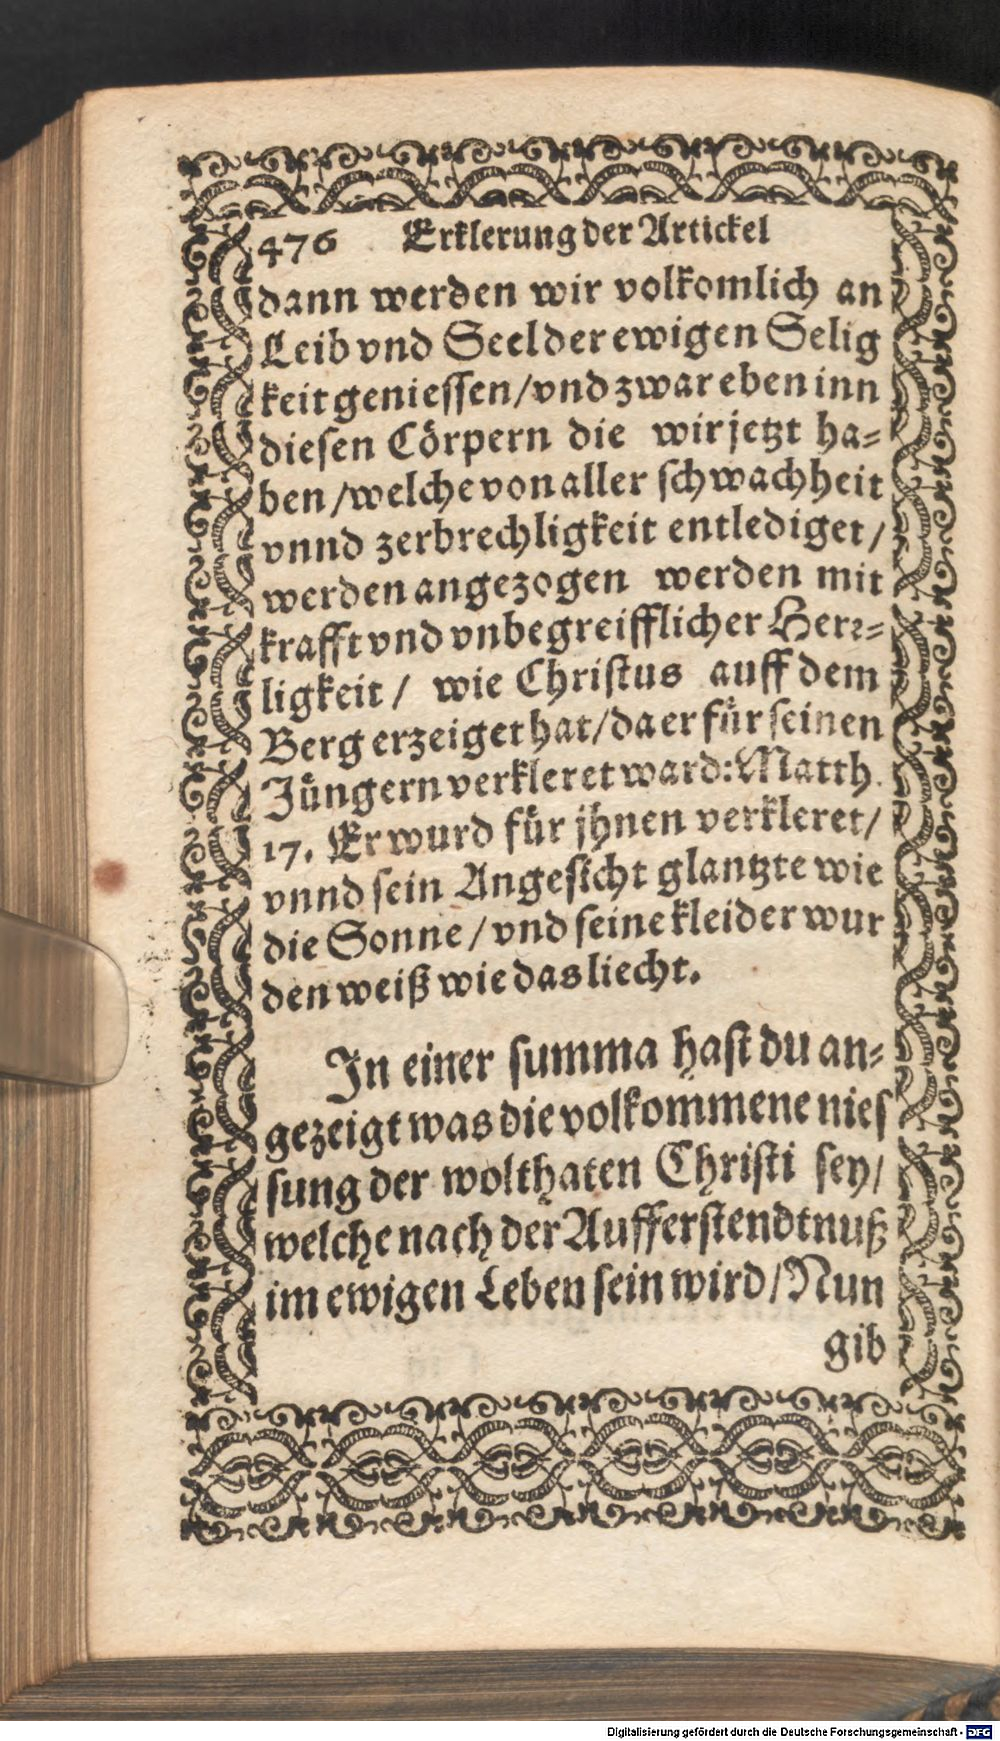 476 Erklerung der Artickel
dann werden wir volkomlich an
Leib vnd Seel der ewigen Selig
keit geniessen/vnd zwar eben inn
diesen Cörpern die wir jetzt ha-
ben/welche von aller schwachheit
vnnd zerbrechligkeit entlediget/
werden angezogen werden mit
krafft vnd vnbegreifflicher Herr-
ligkeit/ wie Christus auff dem
Berg erzeiget hat/da er für seinen
Jüngern verkleret ward: Matth.
17. Er wurd für jhnen verkleret/
vnnd sein Angesicht glantzte wie
die Sonne/vnd seine kleider wur
den weiß wie das liecht.
In einer summa hast du an-
gezeigt was die volkommene nies
sung der wolthaten Christi sey/
welche nach der Aufferstendtnuß
im ewigen Leben sein wird/Nun
gib
Digitalisierung gefördert durch die Deutsche Forschungsgemeinschaft - DFG